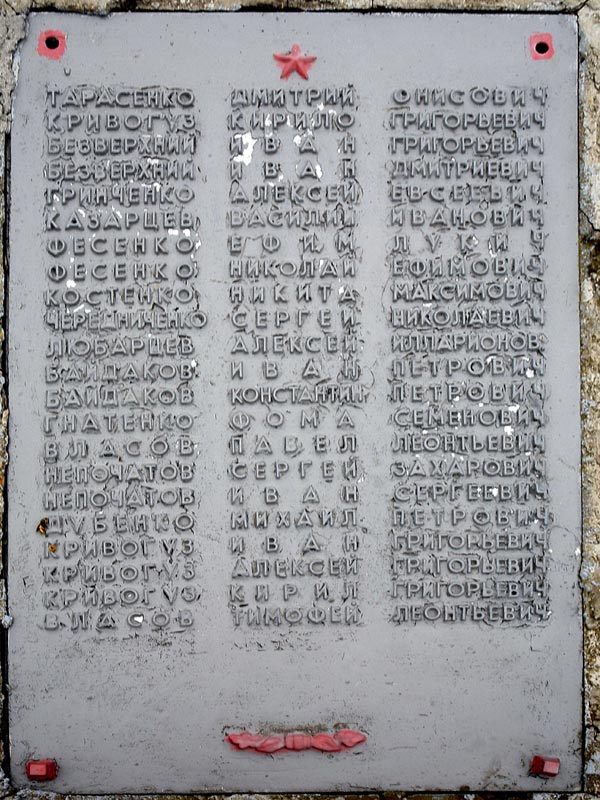 ТАРАСЕНКО ДМИТРИЙ ОНИСОВИЧ
КРИВОГУЗ КИРИЛО ГРИГОРЬЕВИЧ
БЕЗВЕРХНИЙ ИВАН ГРИГОРЬЕВИЧ
БЕЗВЕРХНИЙ ИВАН ДМИТРИЕВИЧ
ГРИНЧЕНКО АЛЕКСЕЙ ЕВСЕЕВИЧ
КАЗАРЦЕВ ВАСИЛИЙ ИВАНОВИЧ
ФЕСЕНКО ЕФИМ ЛУКИЧ
ФЕСЕНКО НИКОЛАЙ ЕФИМОВИЧ
КОСТЕНКО НИКИТА МАКСИМОВИЧ
ЧЕРЕДНИЧЕНКО СЕРГЕЙ НИКОЛАЕВИЧ
ЛЮБАРЦЕВ АЛЕКСЕЙ ИЛЛАРИОНОВ
БАЙДАКОВ ИВАН ПЕТРОВИЧ
БАЙДАКОВ КОНСТАНТИН ПЕТРОВИЧ
ГНАТЕНКО ФОМА СЕМЕНОВИЧ
ВЛАСОВ ПАВЕЛ ЛЕОНТЬЕВИЧ
НЕПОЧАТОВ СЕРГЕЙ ЗАХАРОВИЧ
НЕПОЧАТОВ ИВАН СЕРГЕЕВИЧ
МИХАИЛ ПЕТРОВИЧ
КРИВОГУЗ ИВАН ГРИГОРЬЕВИЧ
КРИВОГУЗ АЛЕКСЕЙ ГРИГОРЬЕВИЧ
КРИВОГУЗ КИРИЛ ГРИГОРЬЕВИЧ
ВЛАСОВ ТИМОФЕЙ ЛЕОНТЬЕВИЧ